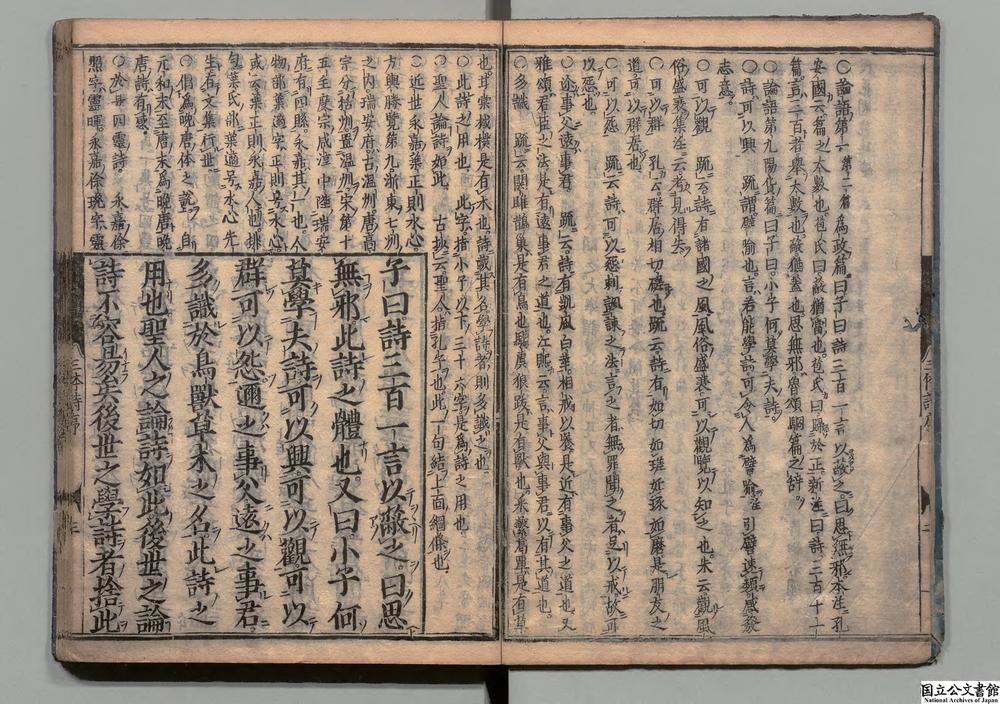 ○論語第一 第二篇 爲政篇曰子曰詩三百一言以蔽之曰思無邪本注孔
安國云篇之大數也苞氏曰蔽猶當也苞氏曰歸於正新注曰詩三百十一
篇言三百者舉大數也蔽猶蓋也思無邪魯頌駉篇之辞
○論語第九陽貨篇曰子曰小子何莫學夫詩
○詩可以興 疏謂譬喻也言若能學詩可令人爲譬喻注引譬連類感發
志意
○可以觀 疏云詩有諸國之風風俗盛衰可以觀覽以知之也朱云觀風
俗盛衰集注云考見得失
○可以群 孔云群居相切磋也疏云詩有如切如磋如琢如磨是朋友之
道可以群者也
○可以怨 疏云詩可以怨刺諷諫之法言之者無罪聞之者足以戒故可
以怨也
○迩事父遠事君 疏云詩有凱風白華相戒以養是近有事父之道也又
雅頌君臣之法是有遠事君之道也江熙云言事父與事君以有其道也
○多識 疏云関雎鵲巣是有鳥也騶虞狼跋是有獸也采蘩葛覃是有草
也甘棠棫樸是有木也詩載其名學詩者則多識之也
○此詩之用也 此字指小子以下三十六字是爲詩之用也
○聖人論詩如此 古抄云聖人指孔子也此一句結上面綱條也
○近世永嘉葉正則水心
方輿勝覧第九浙東七州
之内瑞安府古温州唐高
宗分括州置温州宋第十
五主度宗咸淳中陞瑞安
府有四縣永嘉其一也人
物部葉適字正則号水心
或云葉正則永嘉人也排
勻葉氏部葉適号水心先
生有文集行世
○倡爲晩唐体之説 自
元和末至唐末爲晩唐晩
唐詩有
○於 四靈詩 永嘉徐
照字靈暉永嘉徐璣字靈
子曰詩三百一言以蔽之曰思
無邪此詩之體也又曰小子何
莫學夫詩可以興可以觀可以
群可以怨邇之事父遠之事君
多識於鳥獸草木之名此詩之
用也聖人之論詩如此後世之論
詩不容易矣後世之學詩者捨此
三体詩序
二
国立公文書館
National Archives of Japan